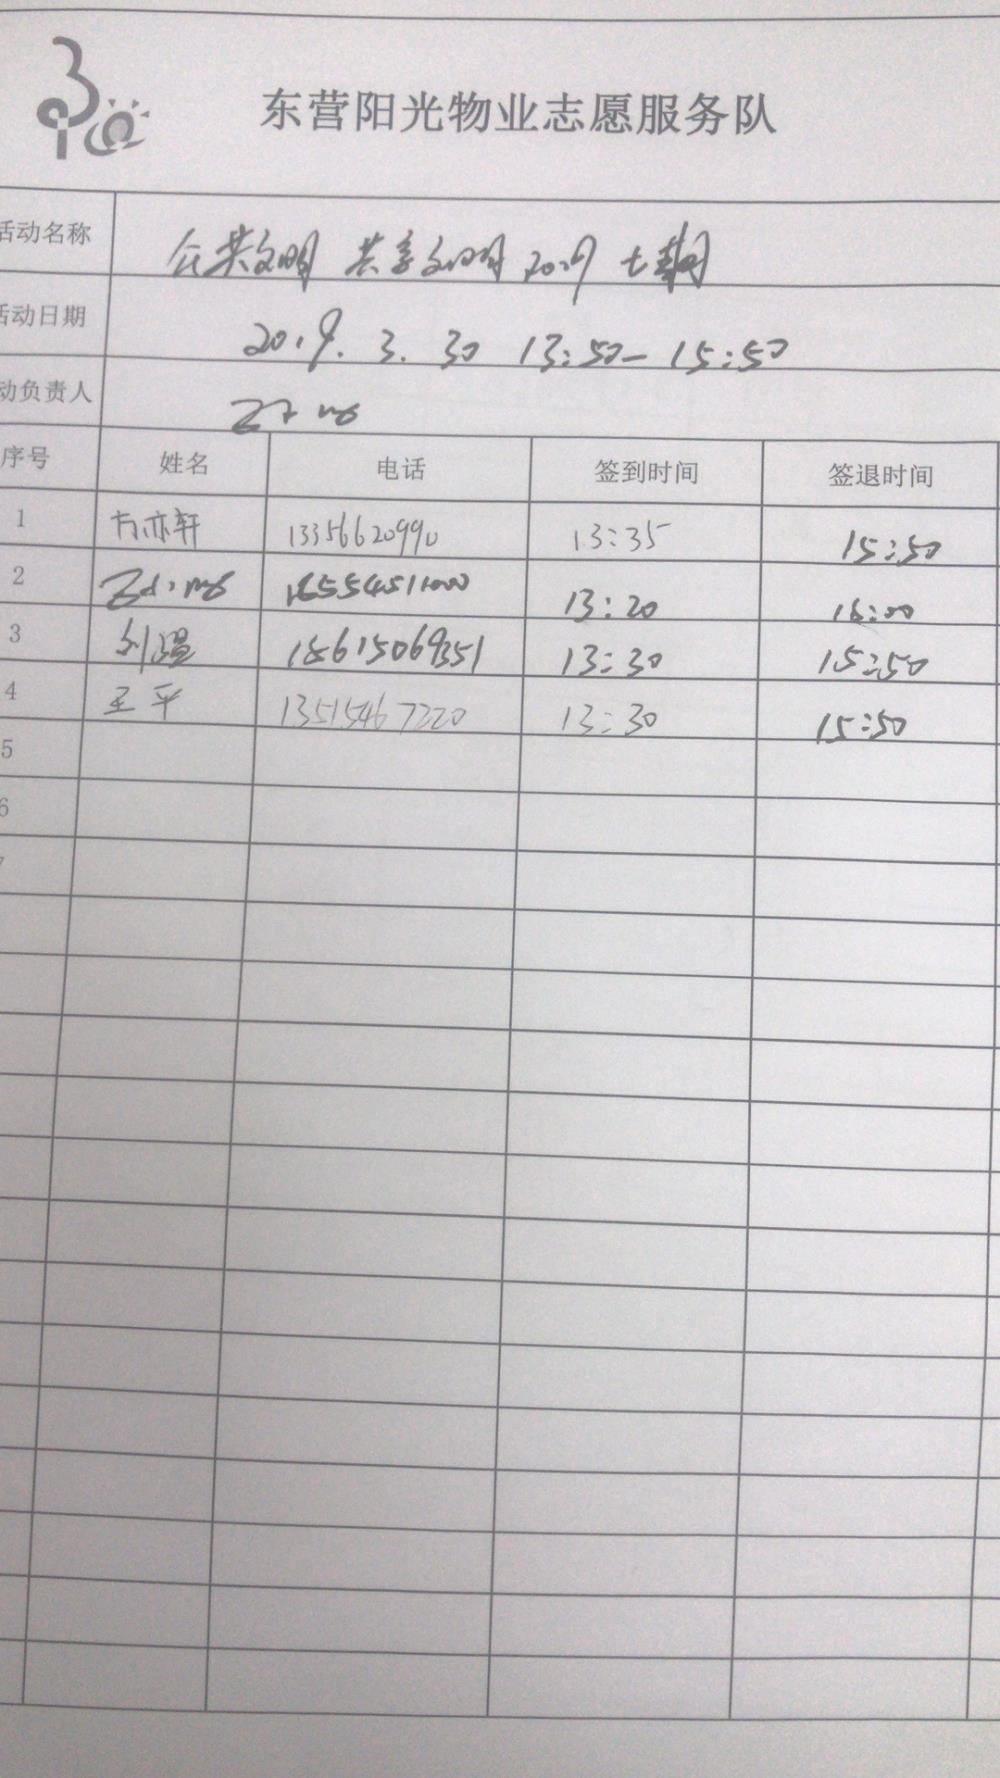 东营阳光物业志愿服务队
活动名称 公共文明 共享文明 2019 七期
活动日期 2019.3.30 13:50-15:50
动负责人
序号 姓名 电话 签到时间 签退时间
1 方亦轩 13356620990 13:35 15:50
2 13:20 16:00
3 刘温 18615069351 13:30 15:50
4 王平 13515467220 13:30 15:50
5
6
7